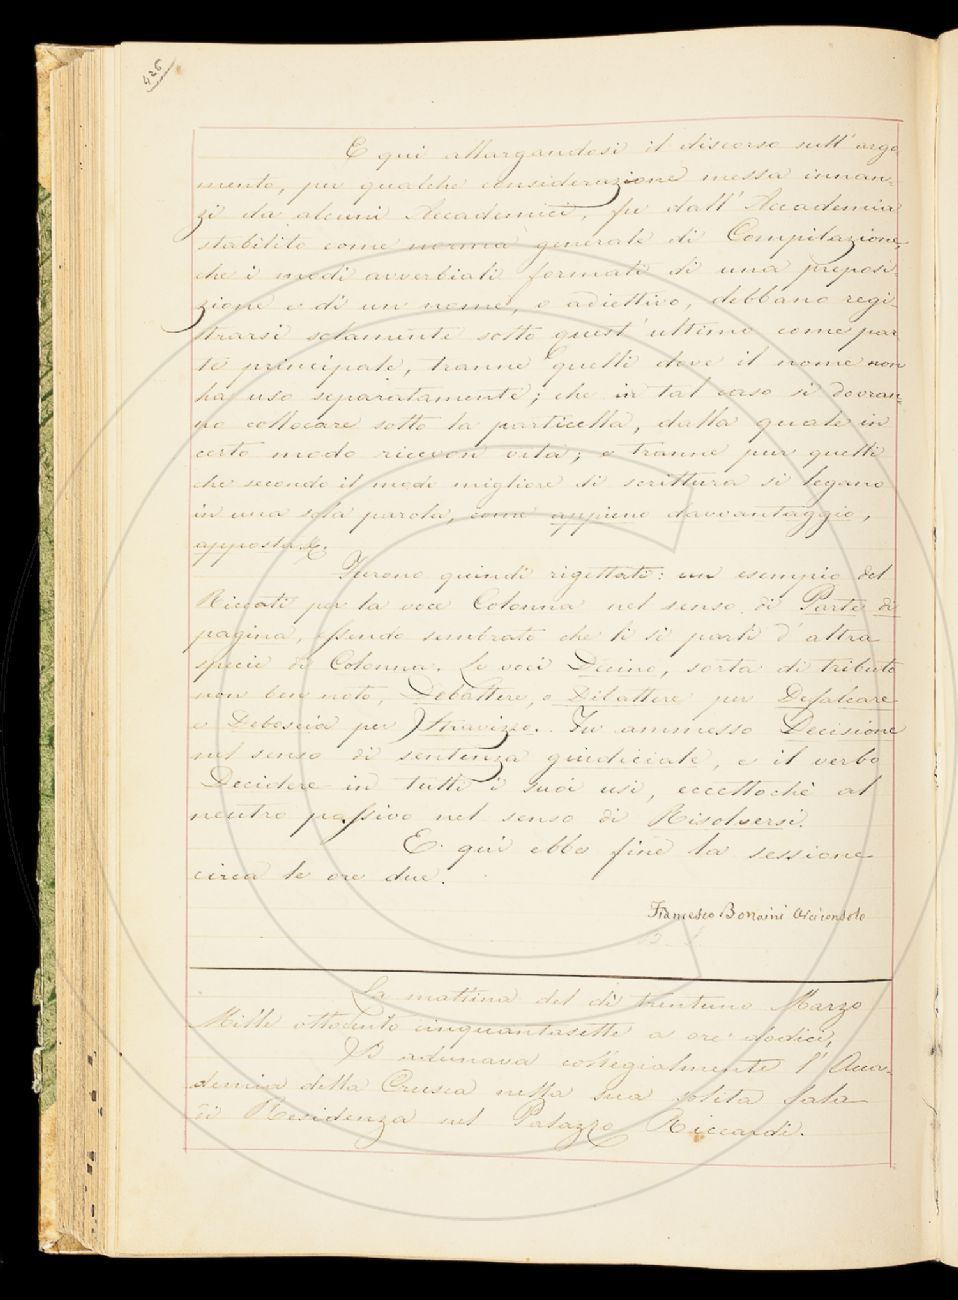 426
E qui allargandosi il discorso sull'argo
mento, per qualche considerazione messa innan-
zi da alcuni Accademici, fu dall'Accademia
stabilito come norma generale di Compilazione,
che i modi avverbiali formati di una preposi-
zione e di un nome, o adiettivo, debbano regi-
strarsi solamente sotto quest'ultimo come par
te principale, tranne quelli dove il nome non
ha uso separatamente; che in tal caso si dovran-
no collocare sotto la particella, dalla quale in
certo modo ricevon vita; e tranne pur quelli
che secondo il modo migliore di scrittura si legano
in una sola parola, come appieno davvantaggio,
apposta &.
Furono quindi rigettati: un esempio del
Riccati per la voce Colonna nel senso di Parte di
pagina, essendo sembrato che lì si parli d'altra
specie di Colonna. Le voci Dècino, sorta di tributo
non ben noto, Debattere, o Dibattere per Defalcare
e Deboscia per Stravizzo. Fu ammesso Decisione
nel senso di sentenza giudiciale, e il verbo
Decidere in tutti i suoi usi, eccettochè al
neutro passivo nel senso di Risolversi.
E qui ebbe fine la sessione
circa le ore due.
Francesco Bonaini Viceconsolo
La mattina del dì trentuno Marzo
Mille ottocento cinquantasette a ore dodici,
Si adunava collegialmente l'Acca-
demia della Crusca nella sua solita Sala
di Residenza nel Palazzo Riccardi.